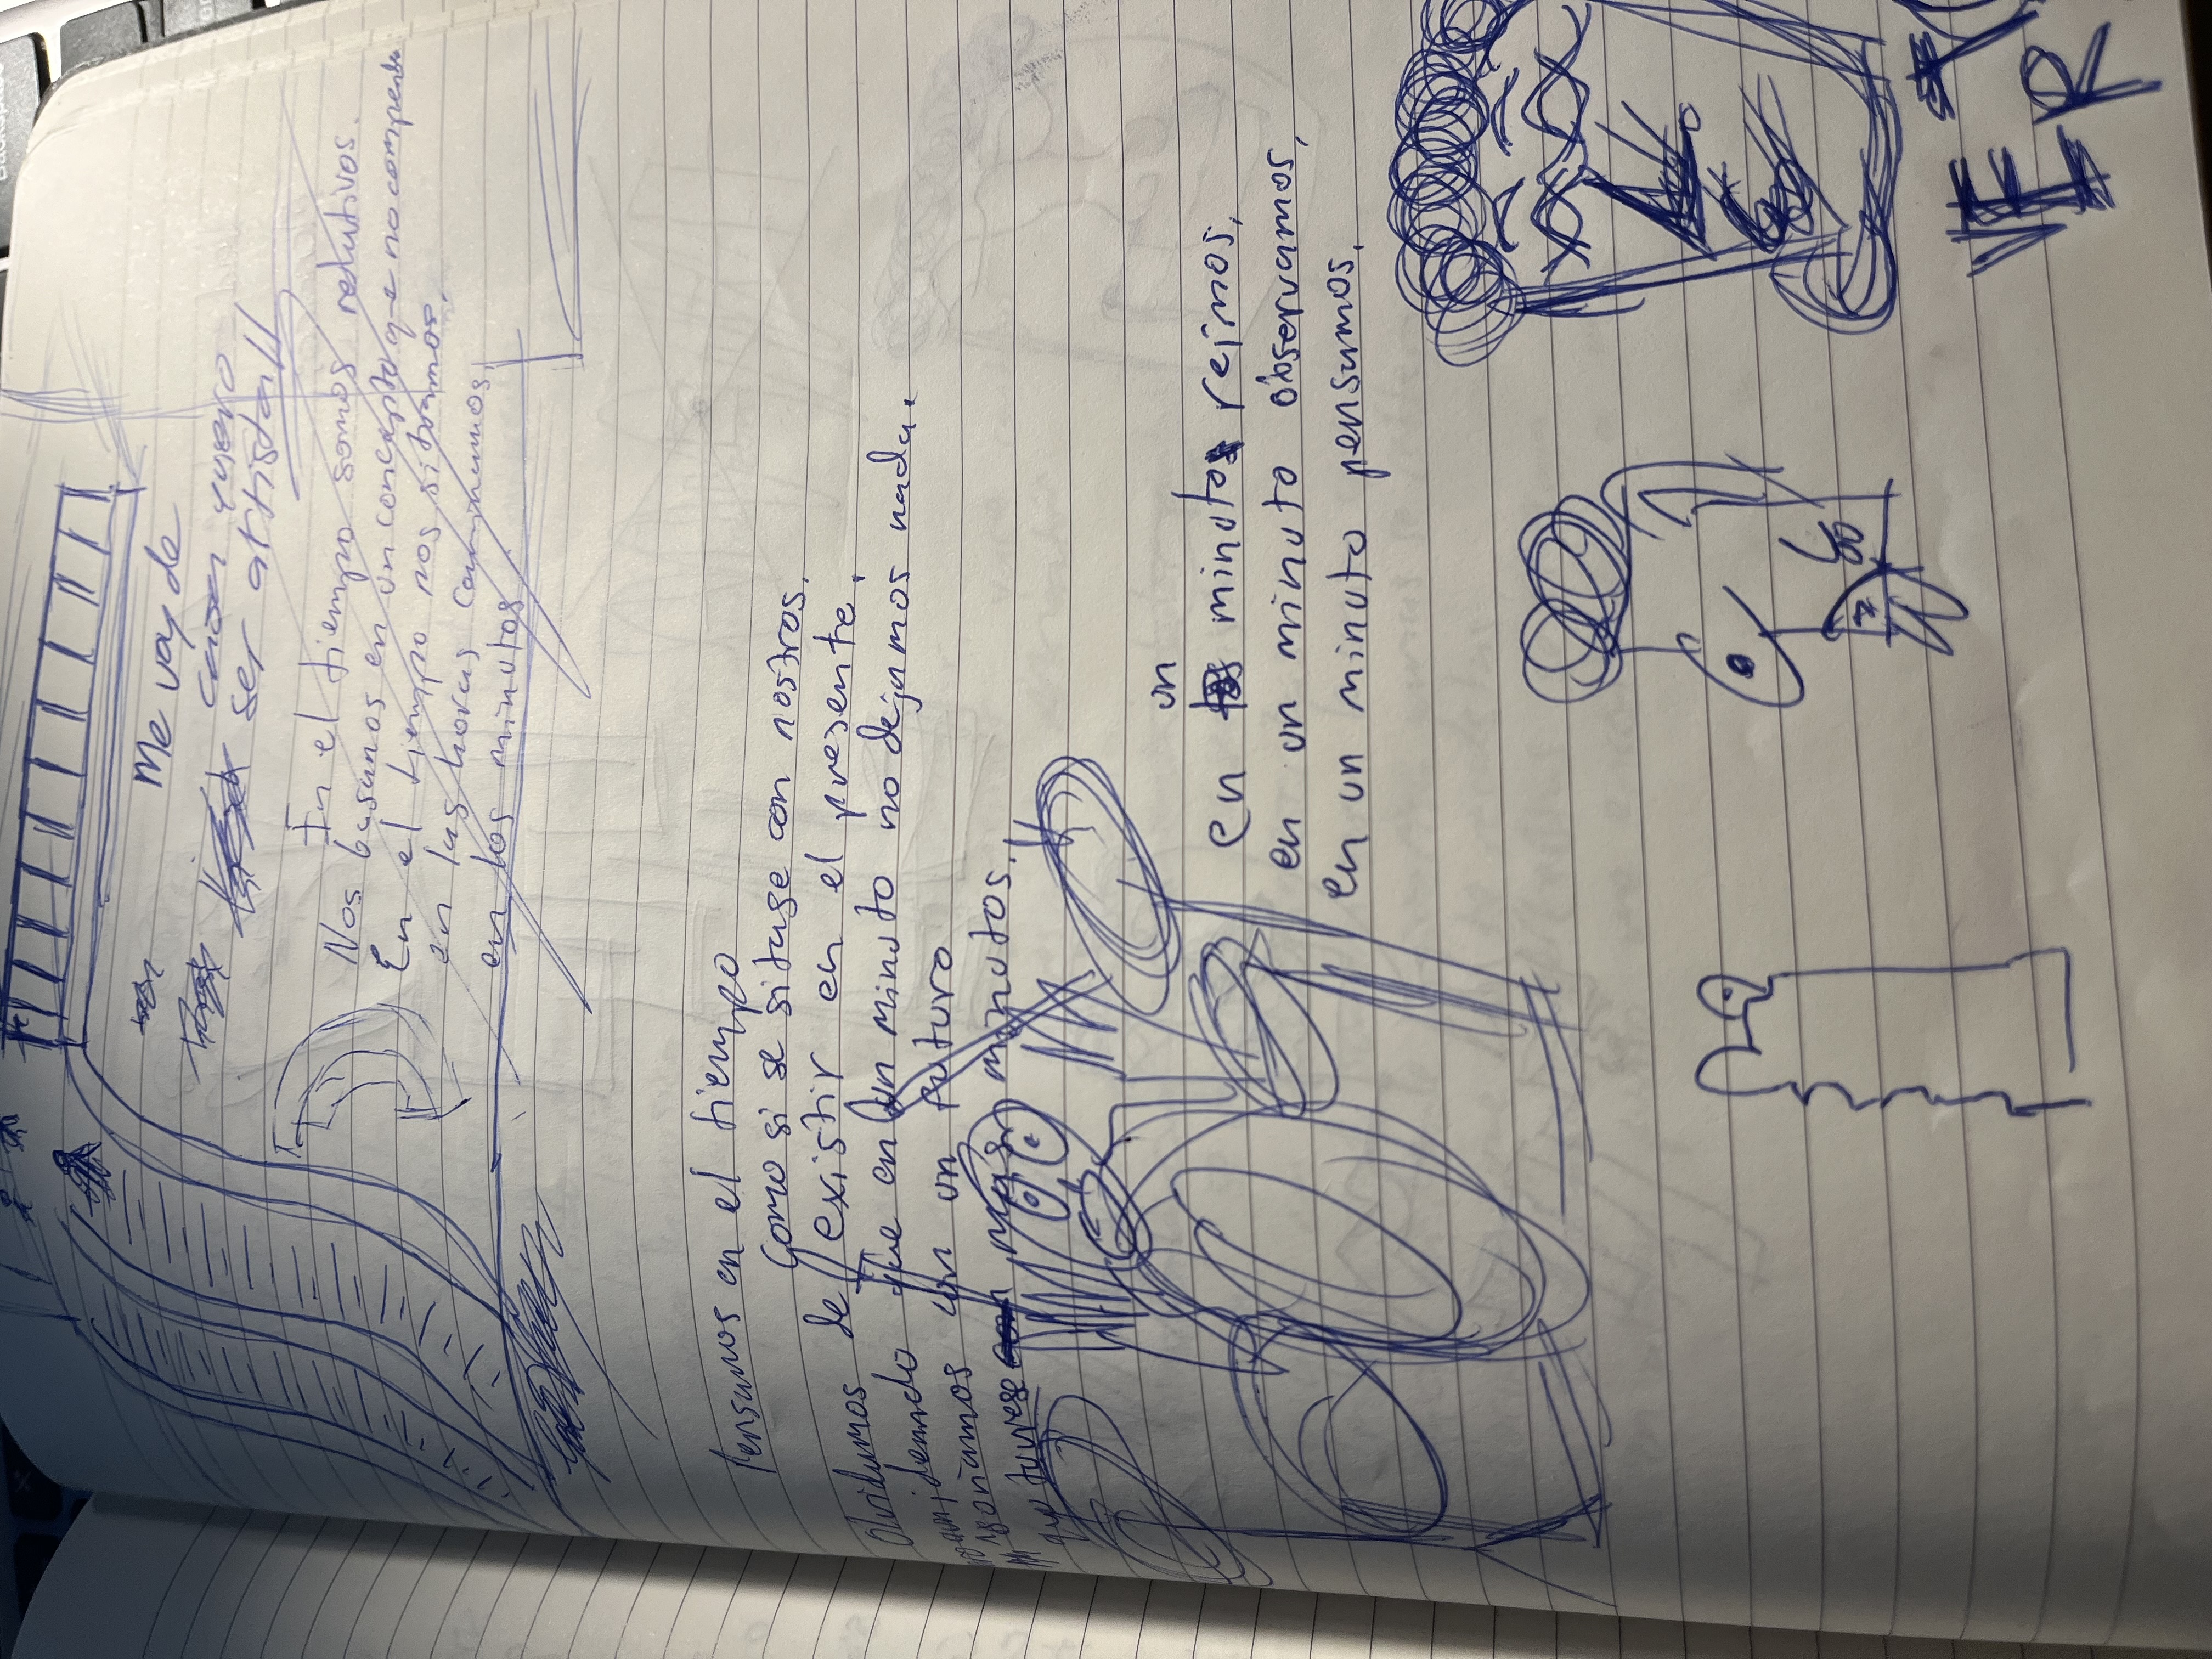 Me voy de
canon quiero
ser artista!!
In el tiempo somos relativos.
Nos basamos en un concepto que no comprende
En el tiempo nos situamos.
en las horas caminamos,
en los minutos
Pensamos en el tiempo
como si se situase con nostros.
Olvidamos de existir en el presente.
que en un minuto no dejamos nada.
con un futuro
que tuviese mas minutos.
un
en minuto reimos,
en un minuto observamos,
en un minuto pensamos.
VER